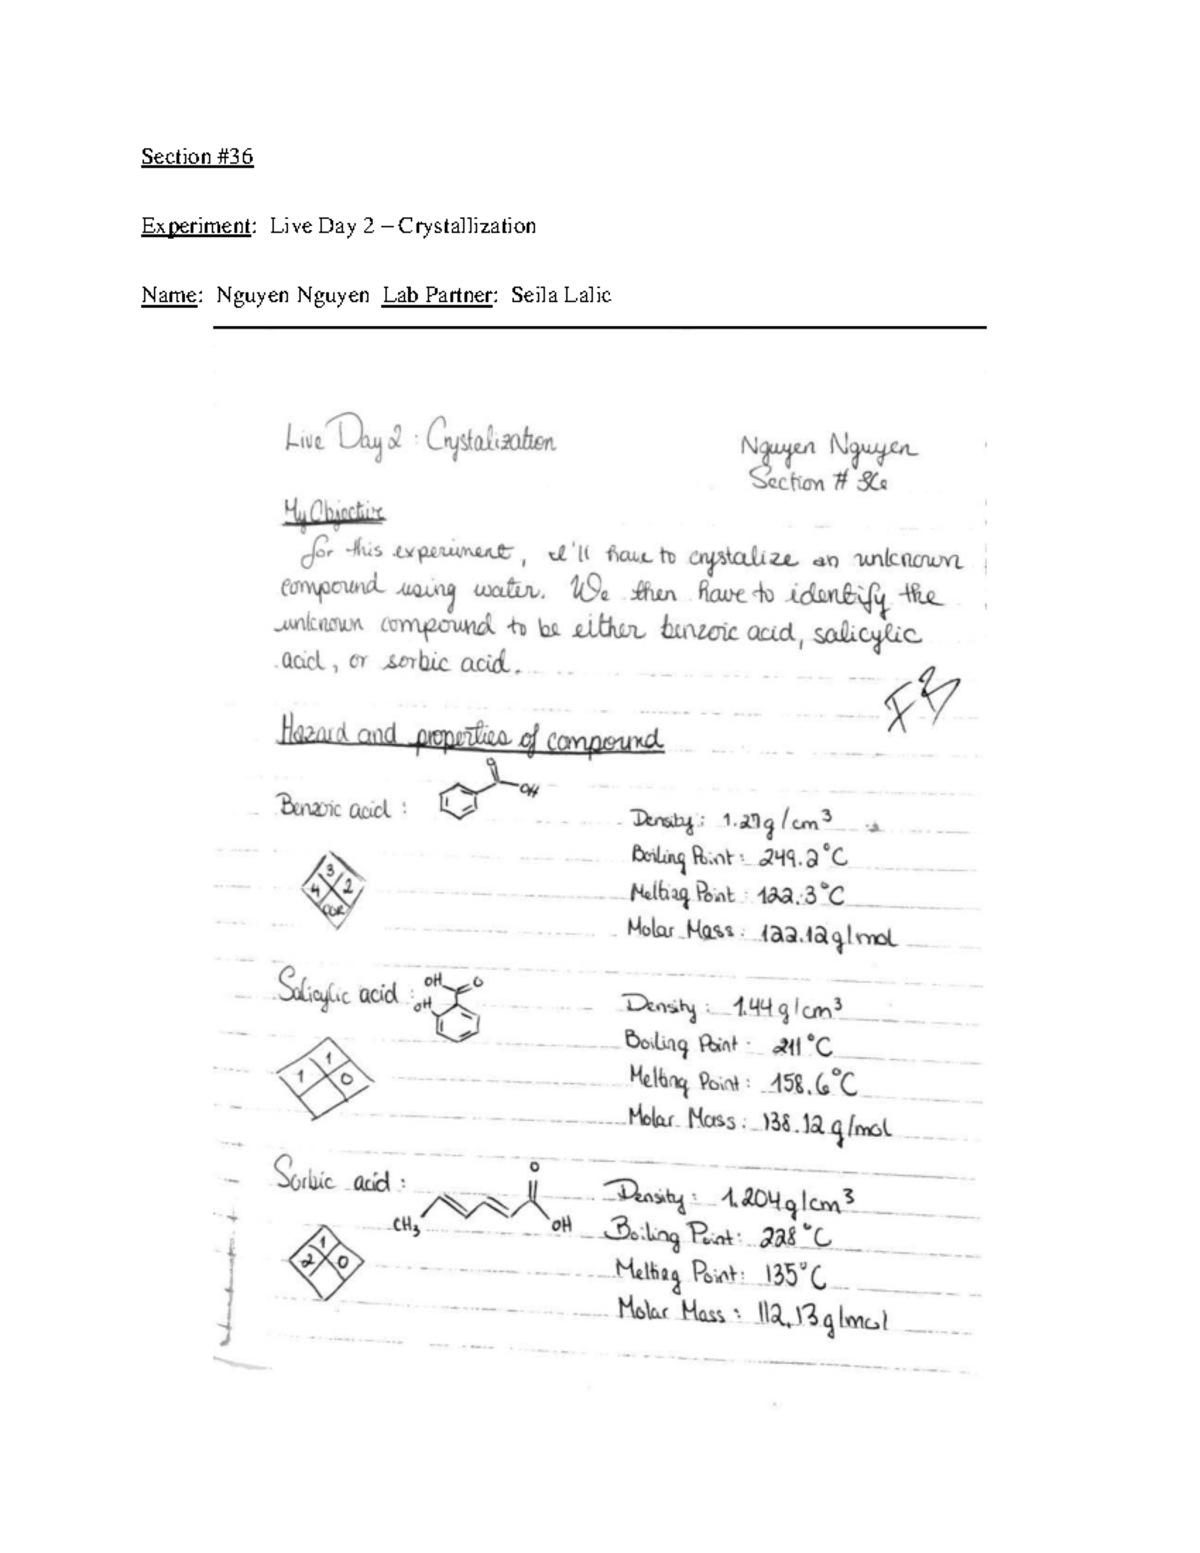 Section #36
Experiment: Live Day 2 – Crystallization
Name: Nguyen Nguyen Lab Partner: Seila Lalic
Live Day 2 : Crystalization
Nguyen Nguyen
Section # 36
My Objective
for this experiment, I'll have to crystalize an unknown
compound using water. We then have to identify the
unknown compound to be either benzoic acid, salicylic
acid, or sorbic acid.
Hazard and properties of compound
Benzoic acid :
O
OH
3
4 2
COR
Density : 1.27g/cm³
Boiling Point : 249.2°C
Melting Point : 122.3°C
Molar Mass : 122.12g/mol
Salicylic acid :
OH O
OH
1
1 0
Density : 1.44g/cm³
Boiling Point : 211°C
Melting Point : 158.6°C
Molar Mass : 138.12 g/mol
Sorbic acid :
O
CH₃ OH
1
2 0
Density : 1.204g/cm³
Boiling Point : 228°C
Melting Point : 135°C
Molar Mass : 112.13g/mol